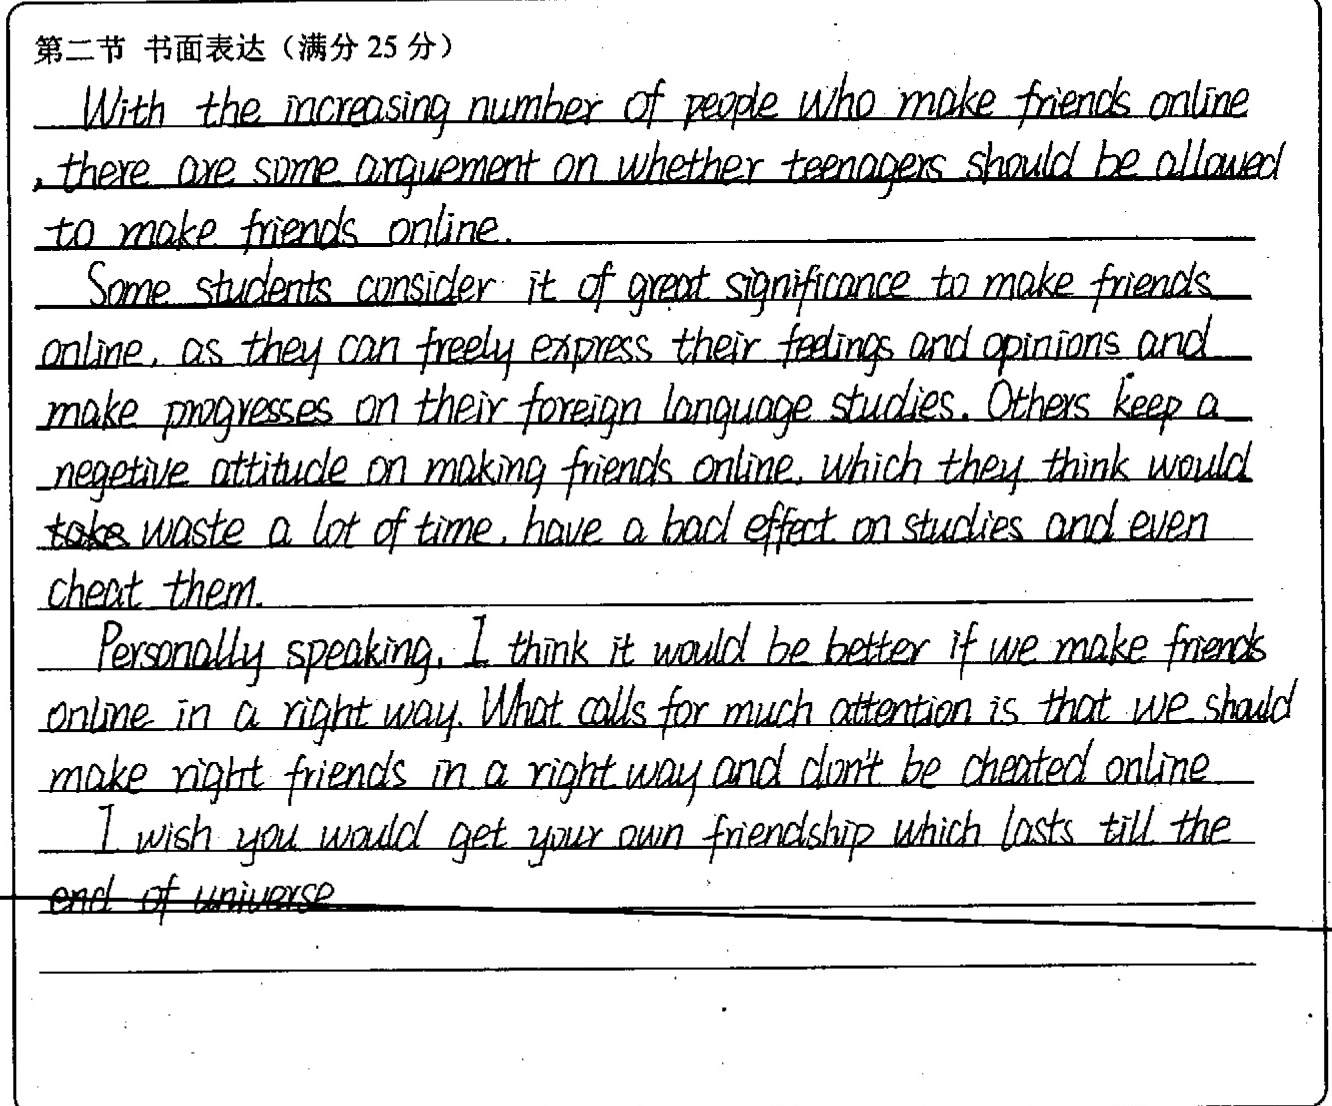 第二节 书面表达（满分 25 分）
With the increasing number of people who make friends online
, there are some arguement on whether teenagers should be allowed
to make friends online.
Some students consider it of great significance to make friends
online, as they can freely express their feelings and opinions and
make progresses on their foreign language studies. Others keep a
negetive attitude on making friends online, which they think would
takes waste a lot of time, have a bad effect on studies and even
cheat them.
Personally speaking, I think it would be better if we make friends
online in a right way. What calls for much attention is that we should
make right friends in a right way and don't be cheated online
I wish you would get your own friendship which lasts till the
end of universe